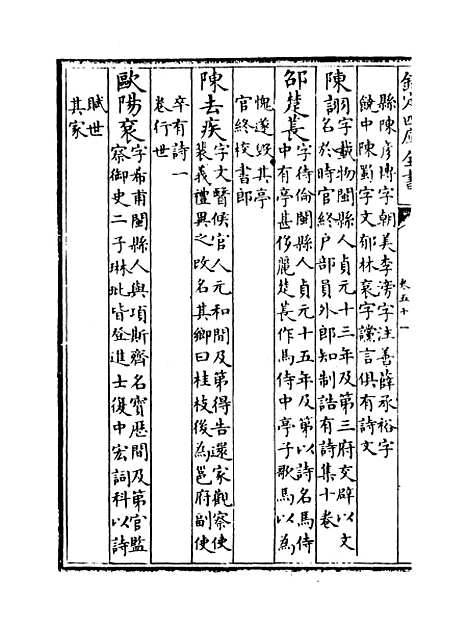 欽定四庫全書
卷五十一
縣陳彥博字朝美李滂字注善薛承裕字
饒中陳勤字文郁林衮字讜言俱有詩文
陳詡字載物閩縣人貞元十三年及第三府交辟以文
名於時官終戶部員外郎知制誥有詩集十卷
邵楚萇字待倫閩縣人貞元十五年及第以詩名馬侍
中有亭甚侈麗楚萇作馬侍中亭子歌馬以為
愧遂毀其亭
官終校書郎
陳去疾字文醫侯官人元和間及第得告還家觀察使
裴義禮異之改名其鄉曰桂枝後為邕府副使
卒有詩一
卷行世
歐陽衮字希甫閩縣人與項斯齊名寶歷間及第官監
察御史二子琳玭皆登進士復中宏詞科以詩
賦世
其家